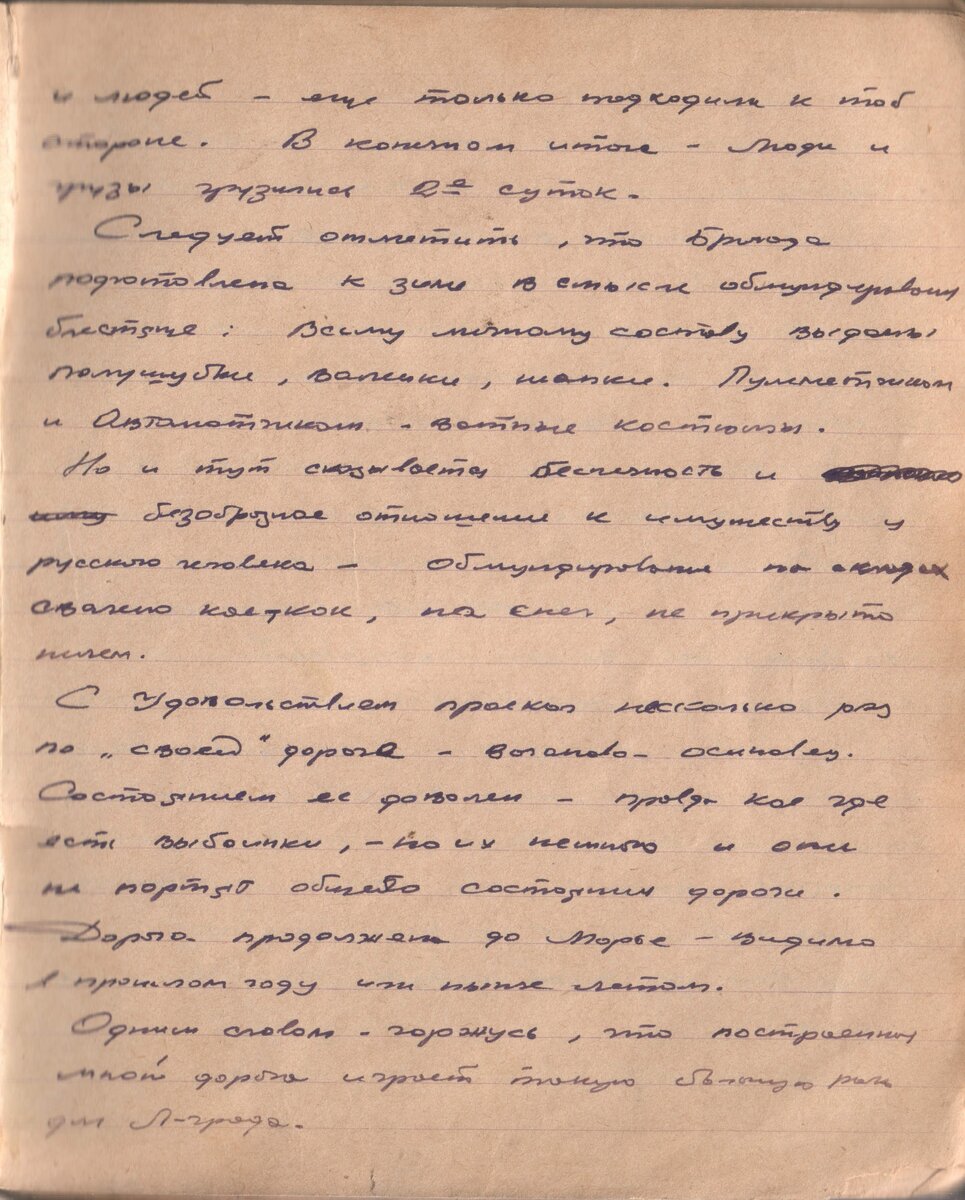 и людей - еще только подходили к той
стороне. В конечном итоге - люди и
грузы грузились 2е суток.
Следует отметить, что Бригада
подготовлена к зиме в смысле обмундирования
блестяще: всему личному составу выданы
полушубки, валенки, шапки. Пулеметчикам
и Автоматчикам - ватные костюмы.
Но и тут сказывается беспечность и
безобразное отношение к имуществу у
русского человека - Обмундирование на складах
свалено кое как, на снег, не прикрыто
ничем.
С удовольствием проехал несколько раз
по „своей" дороге - Ваганово - Осиновец.
Состоянием ее доволен - правда кое где
есть выбоинки, - но их немного и они
не портят общего состояния дороги.
Дорога продолжена до Морье - видимо
в прошлом году или ныне летом.
Одним словом - горжусь, что построенная
мной дорога играет такую большую роль
для Л-града.